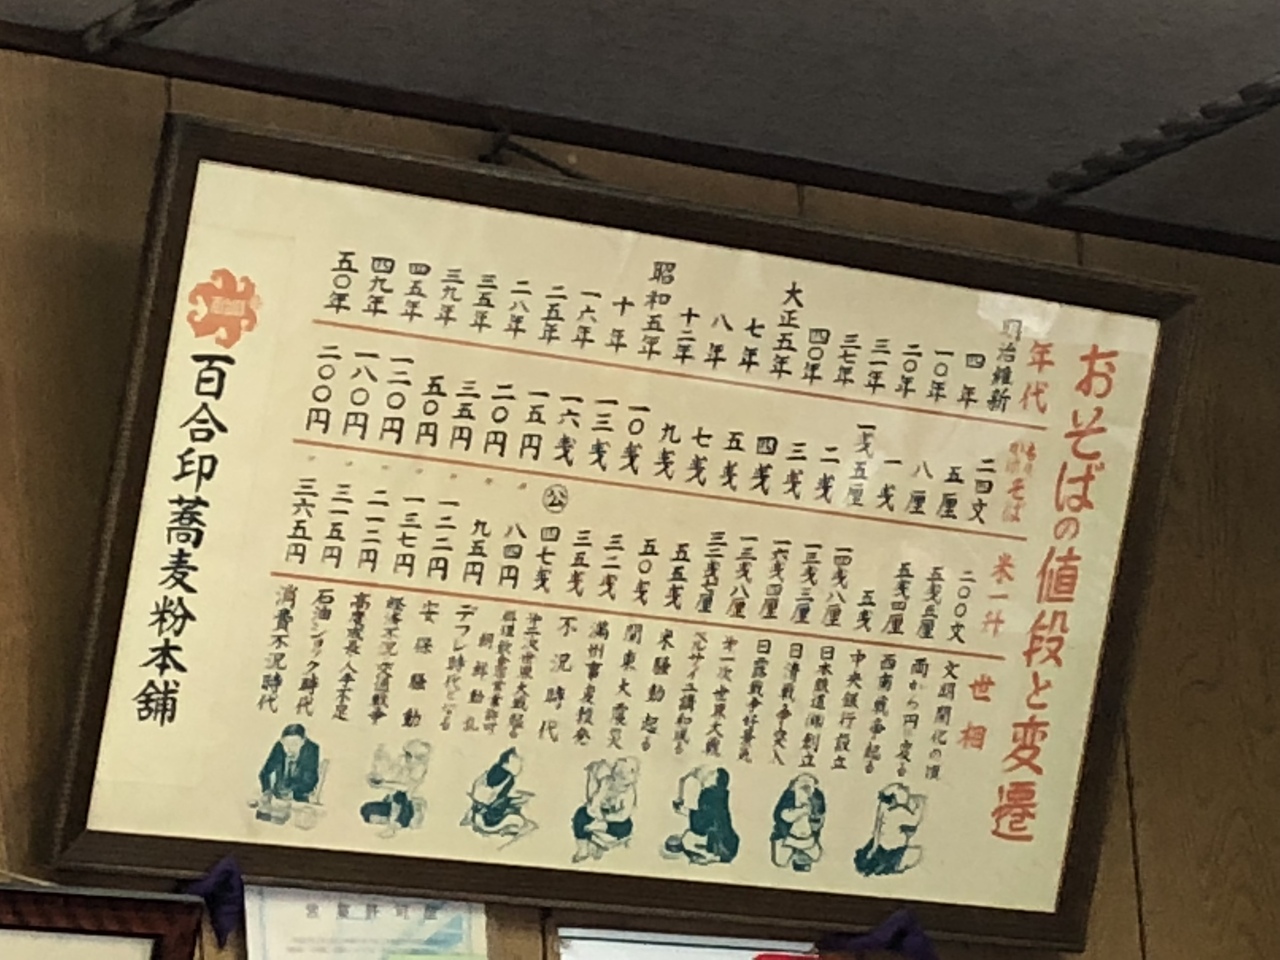 おそばの値段と変遷
年代
明治維新
四年
一〇年
二〇年
三一年
三七年
四〇年
大正五年
七年
八年
十二年
昭和五年
十年
一六年
二五年
二八年
三五年
三九年
四五年
四九年
五〇年
そば
二四文
五厘
八厘
一戋
一戋五厘
二戋
三戋
四戋
五戋
七戋
九戋
一〇戋
一三戋
一六戋
一五円
二〇円
三五円
五〇円
一二〇円
一八〇円
二〇〇円
米一升
二〇〇文
五戋五厘
五戋四厘
五戋
一四戋八厘
一三戋三厘
一六戋四厘
一三戋八厘
三二戋七厘
五五戋
五〇戋
三二戋
三五戋
公 四七戋
八四円
九五円
一二二円
一三七円
二一二円
三一五円
三六五円
世相
文明開化の頃
両から円に変る
西南戦争起る
中央銀行設立
日本鉄道㈱創立
日清戦争突入
日露戦争好景気
第一次世界大戦
米騒動起る
関東大震災
満州事変勃発
不況時代
朝鮮動乱
デフレ時代となる
安保騒動
高度成長人手不足
石油ショック時代
消費不況時代
百合印蕎麦粉本舗
営業許可